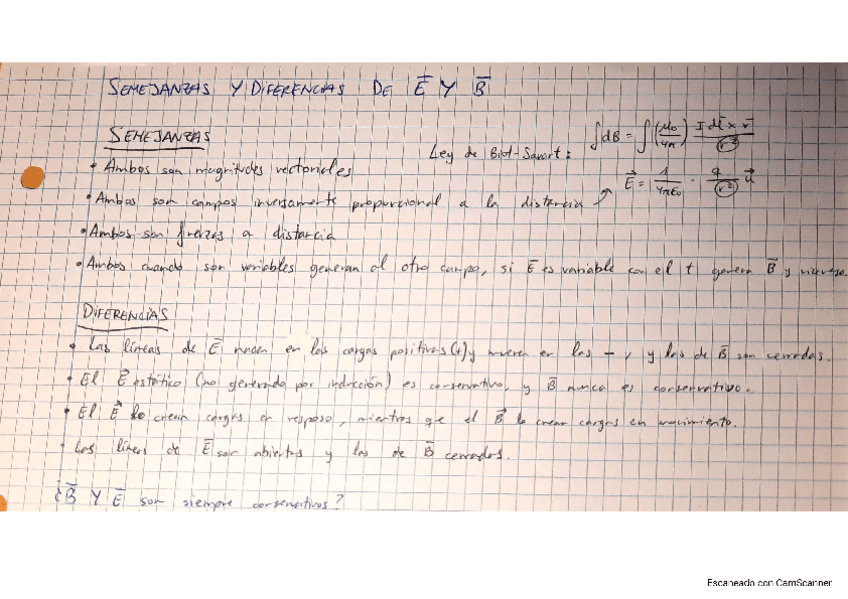 SEMEJANZAS Y DIFERENCIAS DE E⃗ Y B⃗
SEMEJANZAS
Ley de Biot-Savart: ∫dB = ∫(μ₀/4π) I dl⃗ x r⃗/r²
• Ambos son magnitudes vectoriales
E⃗ = 1/4πε₀ · q/r² u⃗
• Ambos son campos inversamente proporcional a la distancia
• Ambos son fuerzas a distancia
• Ambos cuando son variables generan al otro campo, si E⃗ es variable con el t genera B⃗ y viceversa.
DIFERENCIAS
• Las líneas de E⃗ nacen en las cargas positivas (+) y mueren en las − , y las de B⃗ son cerradas.
• El E⃗ estático (no generado por inducción) es conservativo, y B⃗ nunca es conservativo.
• El E⃗ lo crean cargas en resposo, mientras que el B⃗ lo crean cargas en movimiento.
• Las líneas de E⃗ son abiertas y las de B⃗ cerradas.
¿B⃗ Y E⃗ son siempre conservativos?
Escaneado con CamScanner